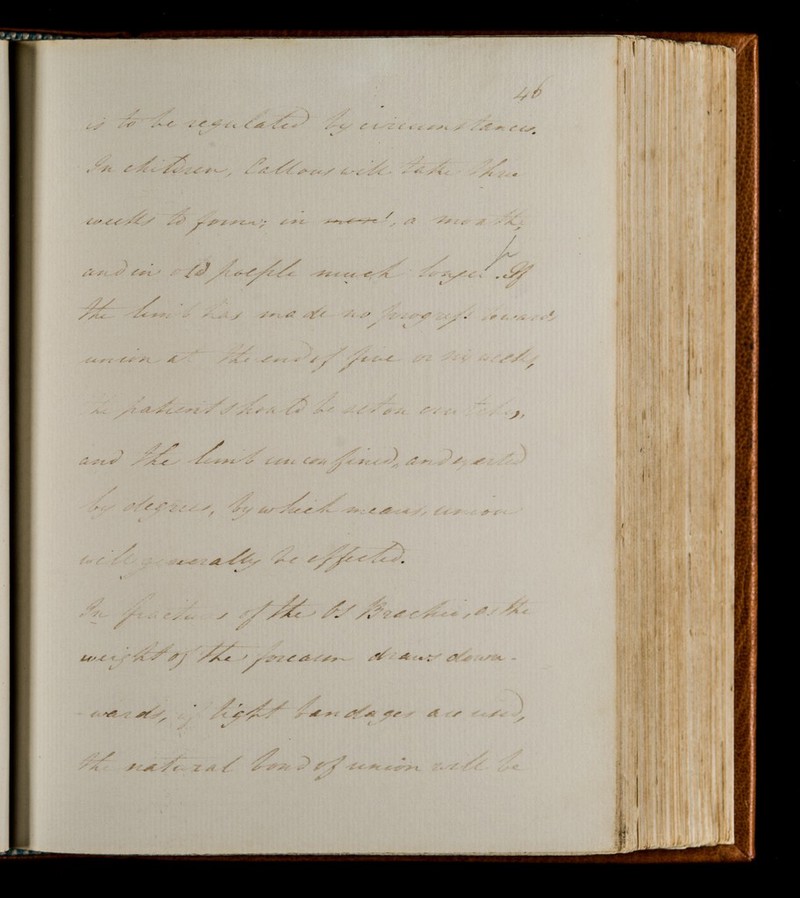 46
is to be regulated by circumstances.
In children, Callous will take three
weeks to form; in men!, a month,
and in old poeple much longer. If
the limb has made no progress towards
union at the end of five or six weeks,
the patient should be set on crutches,
and the limb unconfined, and exerted
by degrees, by which means, union
will generally be effected.
In fractures of the Os Brachii, as the
weight of the forearm draws down-
-wards, if tight bandages are used,
the natural bond of union will be